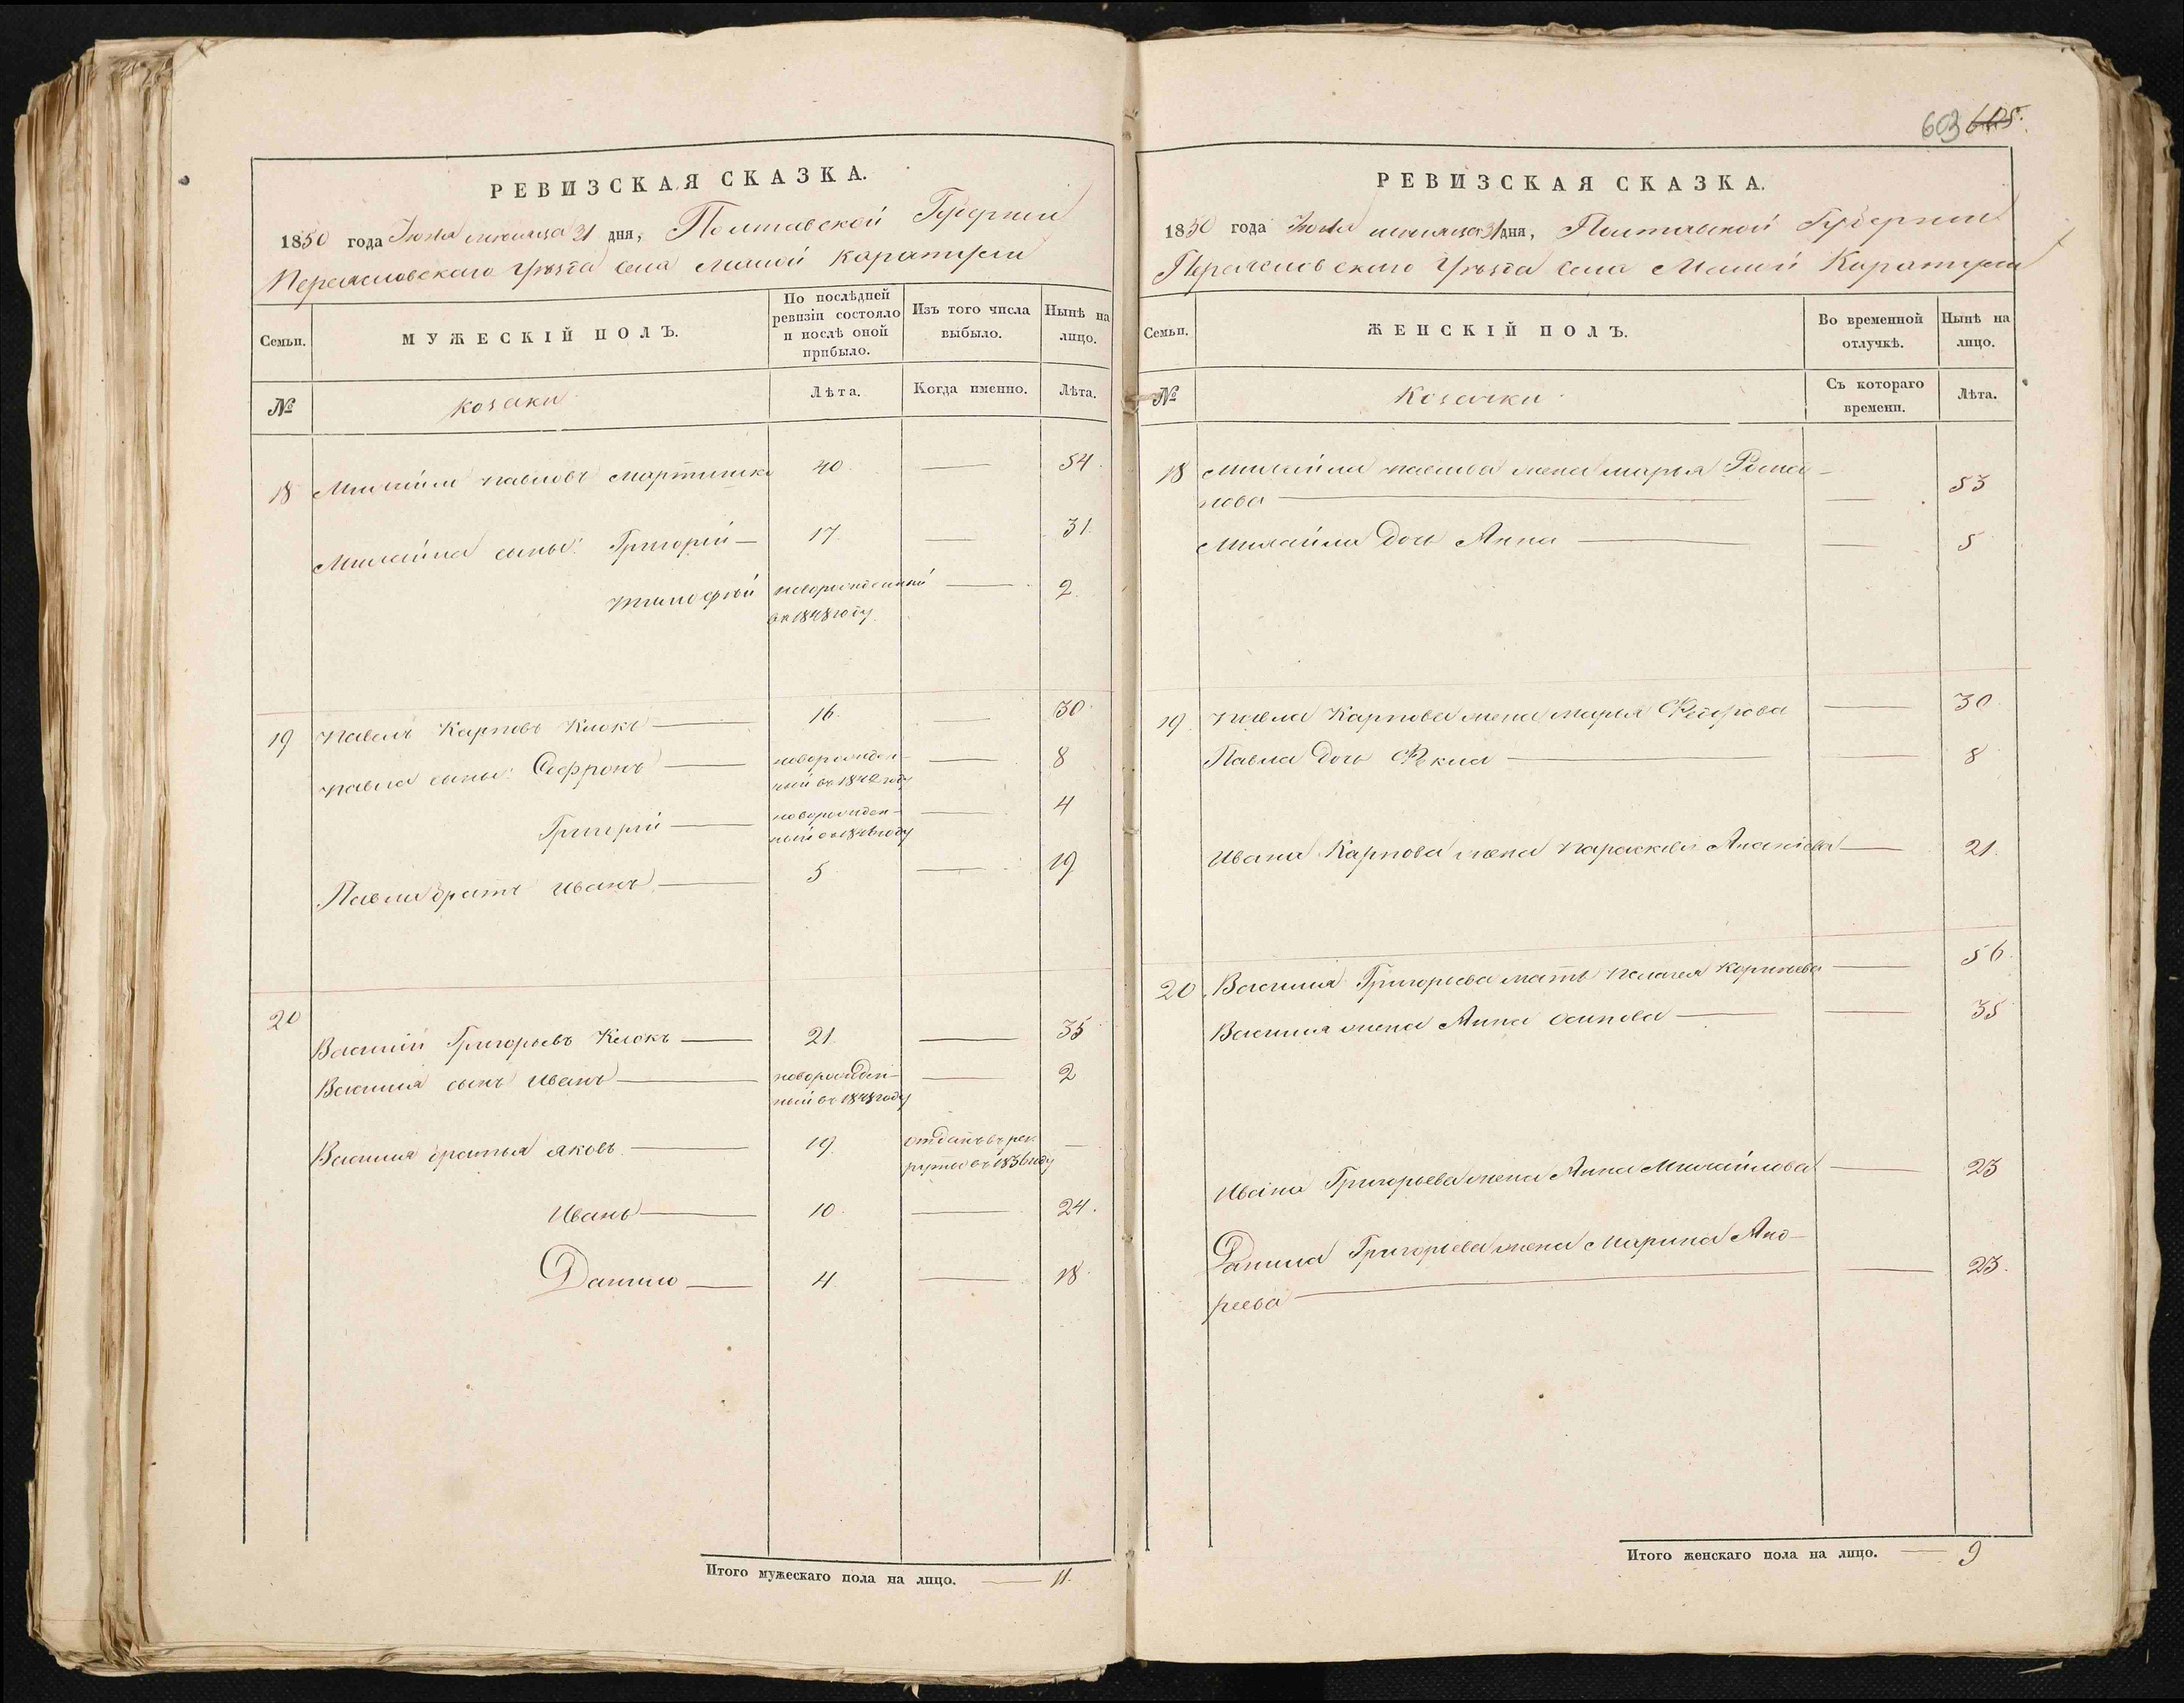 603 605.
РЕВИЗСКАЯ СКАЗКА.
1850 года Июля месяца 31 дня, Полтавской Губернии
Переясловскаго Уѣзда села Малой Каратули
Семьи.
МУЖЕСКІЙ ПОЛЪ.
По послѣдней
ревизіи состояло
и послѣ оной
прибыло.
Изъ того числа
выбыло.
Нынѣ на
лицо.
№
козаки
Лѣта.
Когда именно.
Лѣта.
18 Михайло Павловъ 40 — 54.
Михайла сыны: Григорій — 17 — 31.
Тимофѣй новорожденный — 2.
въ 1848 году.
19 Павелъ Карповъ Клокъ — 16. — 30.
Павла сыны: Софронъ — новорожден- — 8
ный въ 1842 году
Григорій — новорожден- — 4
ный въ 1846 году
Павла братъ Иванъ — 5 — 19
20
Василій Григорьевъ Клокъ — 21. — 35
Василия сынъ Иванъ — новорожден- — 2
ный въ 1848 году
Василия братья Яковъ — 19. отданъ в рек- —
руты въ 1836 году
Иванъ — 10. — 24.
Данило — 4. — 18.
Итого мужескаго пола на лицо. — 11.
РЕВИЗСКАЯ СКАЗКА.
1850 года Июля месяца 31 дня, Полтавской Губернии
Переясловскаго Уѣзда села Малой Каратули
Семьи.
ЖЕНСКІЙ ПОЛЪ.
Во временной
отлучкѣ.
Нынѣ на
лицо.
№
Козачки
Съ котораго
времени.
Лѣта.
18 Михайла Павлова жена Марья Рома-
нова — — 53
Михайла дочь Анна — — 5
19. Павла Карпова жена Марья Федорова — 30.
Павла дочь Фекла — — 8
Ивана Карпова жена Параскева — 21.
20. Василия Григорьева мать Пелагея — 56.
Василия жена Анна Осипова — — 35
Ивана Григорьева жена Анна Михайлова — 23
Данила Григорьева жена Марина Анд-
реева — — 23.
Итого женскаго пола на лицо. — 9